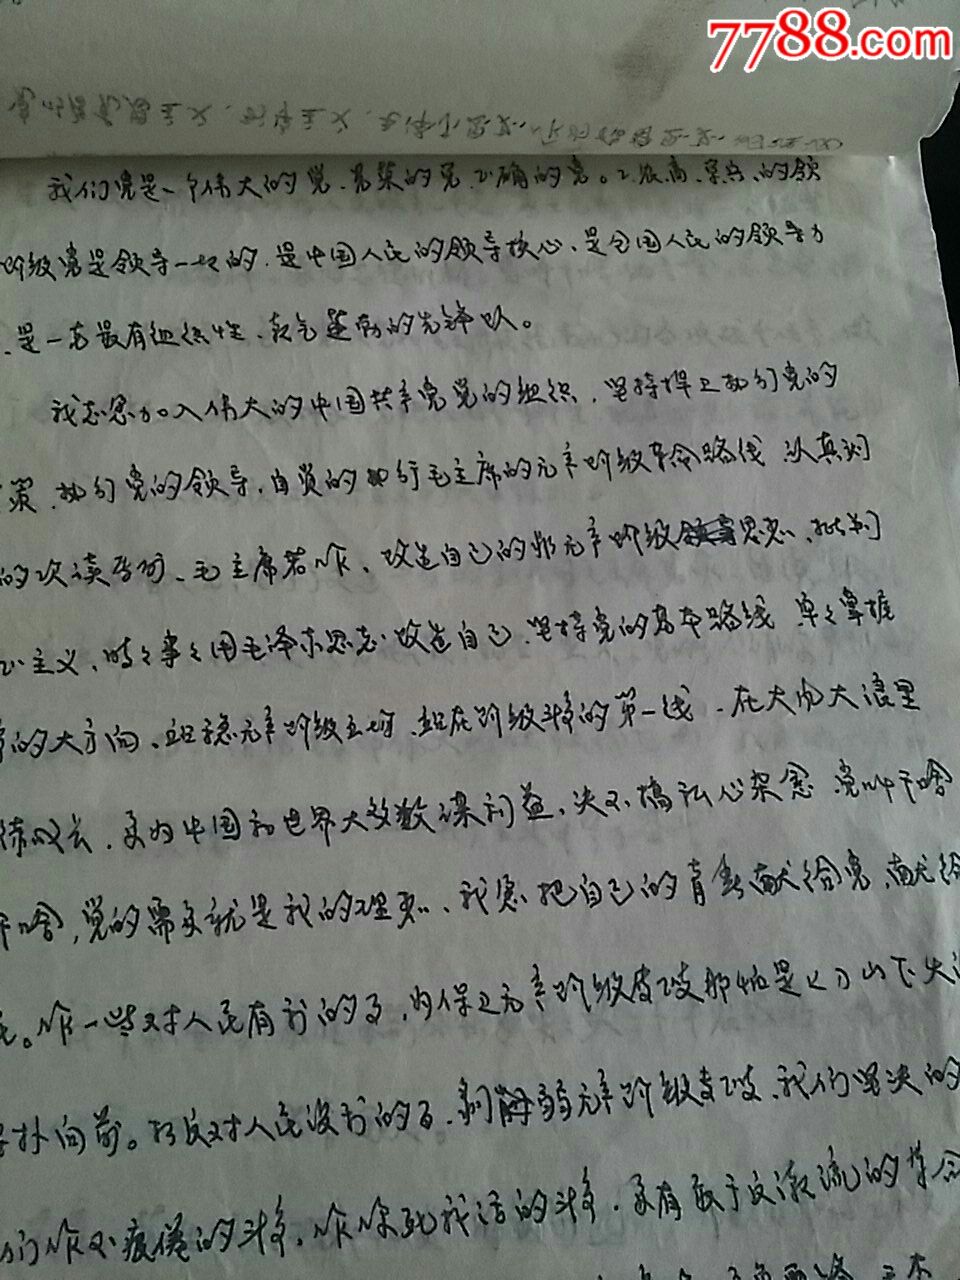 7788.com
我们党是一个伟大的党、光荣的党、正确的党。工农商学兵的领
阶级党是领导一切的、是中国人民的领导核心、是全国人民的领导力
、是一支最有组织性、朝气蓬勃的先锋队。
我志愿加入伟大的中国共产党党的组织、坚持捍卫执行党的
策、执行党的领导、自觉的执行毛主席的无产阶级革命路线 认真
的次读马列、毛主席著作、改造自己的非无产阶级思想、批判
正主义、时々事々用毛泽东思想改造自己、坚持党的基本路线 牢々掌握
的大方向、站稳无产阶级立场、站在阶级斗争的第一线、在大风大浪里
炼成长、要为中国和世界大多数谋利益、决不搞私心杂念 党叫干啥
干啥,党的需要就是我的理想、我愿把自己的青春献给党、献给
。作一些对人民有利的事,为保卫无产阶级政权那怕是上刀山下火
扑向前。 对人民没利的事、削弱无产阶级政权、我们坚决的
们作不疲倦的斗争,作你死我活的斗争、要有敢于反潮流的革命